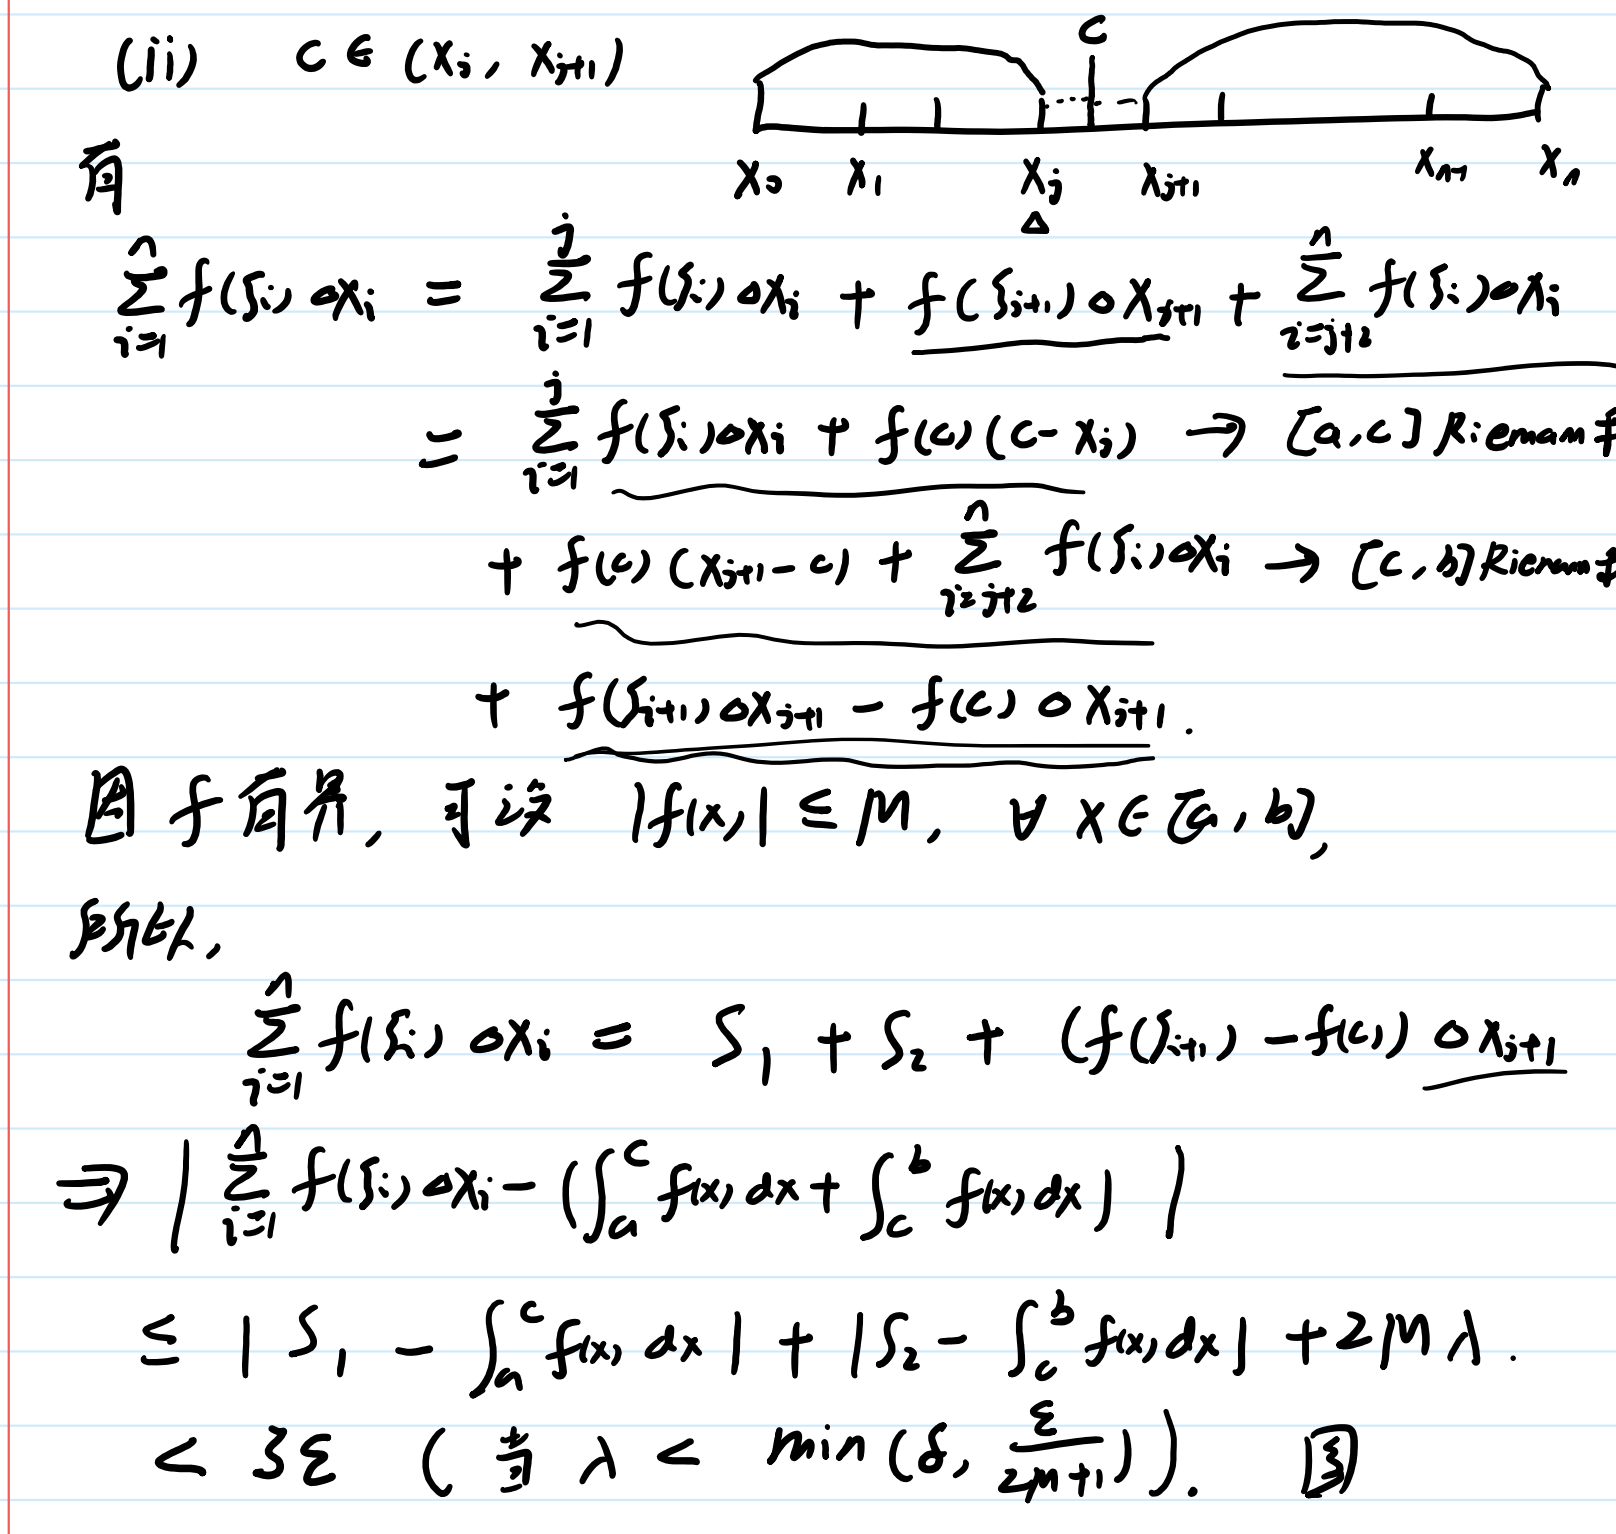 (ii) C ∈ (x_j, x_{j+1})
C
x_0 x_1 x_j x_{j+1} x_{n-1} x_n
△
有
∑_{i=1}^{n} f(ξ_i)△x_i = ∑_{i=1}^{j} f(ξ_i)△x_i + f(ξ_{j+1})△x_{j+1} + ∑_{i=j+2}^{n} f(ξ_i)△x_i
= ∑_{i=1}^{j} f(ξ_i)△x_i + f(c)(c-x_j) → [a,c] Riemann
+ f(c)(x_{j+1}-c) + ∑_{i=j+2}^{n} f(ξ_i)△x_i → [c,b] Riemann
+ f(ξ_{j+1})△x_{j+1} - f(c)△x_{j+1}.
因 f 有界, 可设 |f(x)| ≤ M, ∀ x∈[a,b],
所以,
∑_{i=1}^{n} f(ξ_i)△x_i = S_1 + S_2 + (f(ξ_{j+1})-f(c))△x_{j+1}
⇒ | ∑_{i=1}^{n} f(ξ_i)△x_i - (∫_a^c f(x)dx + ∫_c^b f(x)dx) |
≤ |S_1 - ∫_a^c f(x)dx| + |S_2 - ∫_c^b f(x)dx| + 2Mλ.
< 3ε (当 λ < min(δ, ε/(2M+1))).